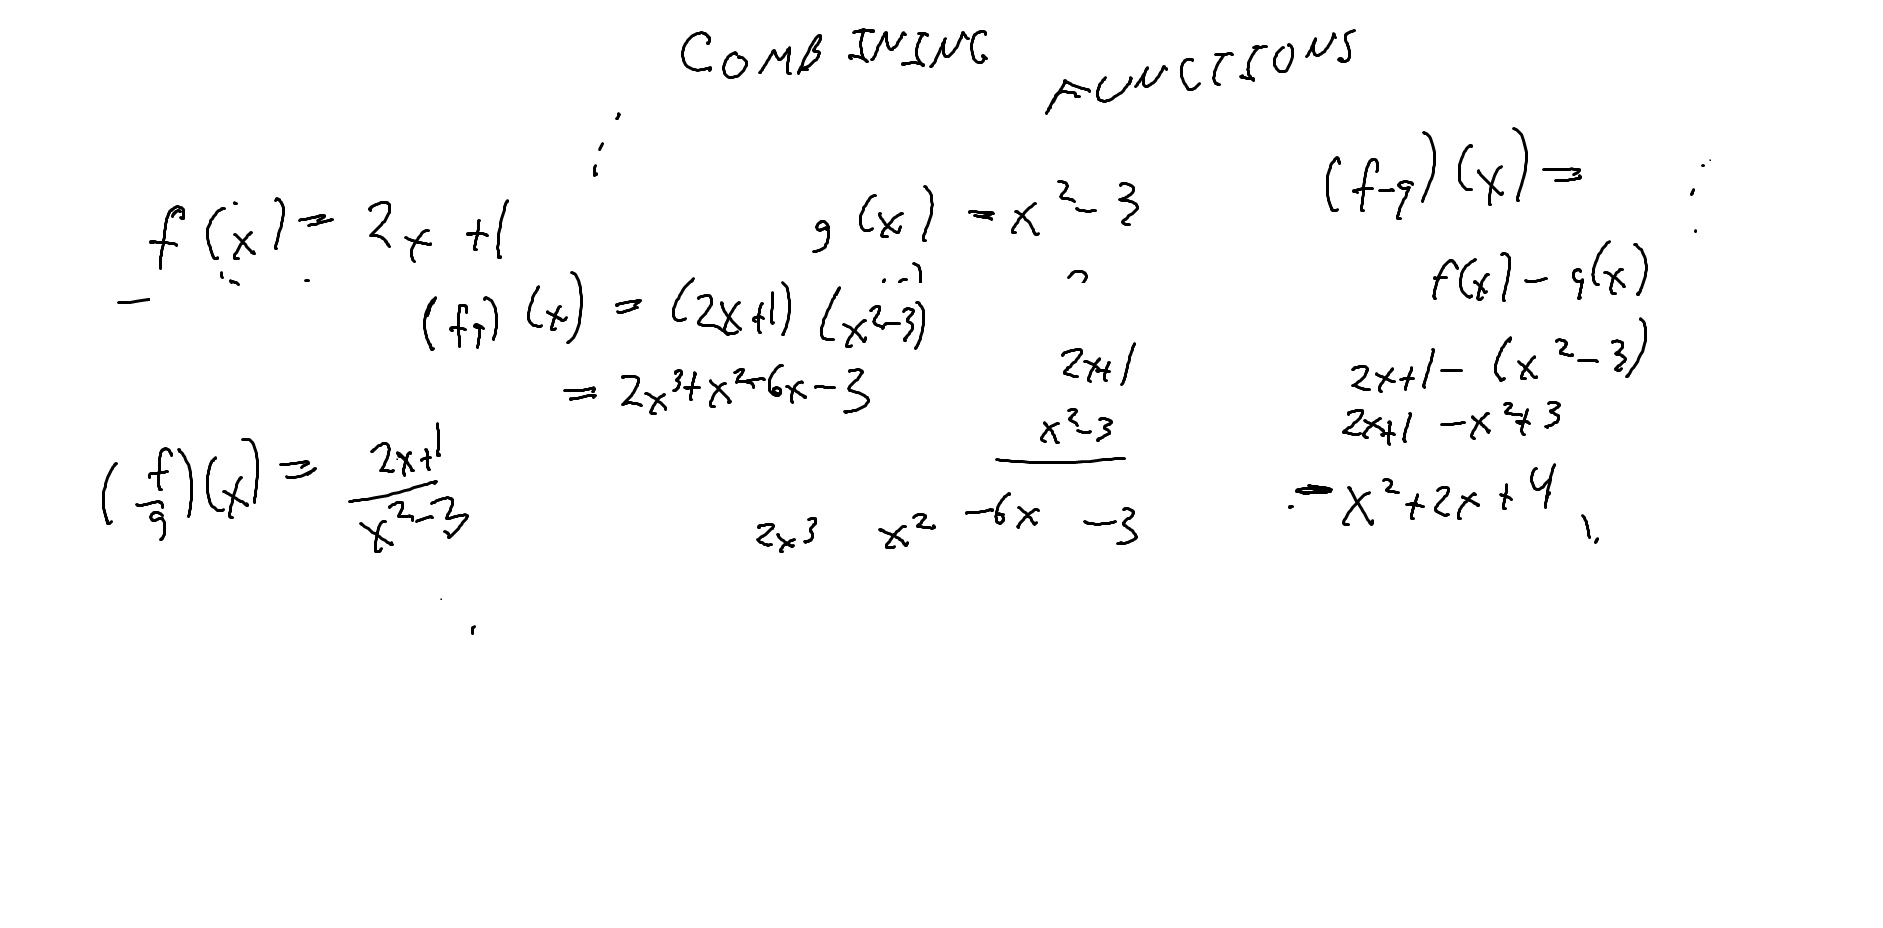 COMBINING FUNCTIONS
f(x) = 2x+1
g(x) = x²-3
(fg)(x) = (2x+1)(x²-3)
= 2x³+x²-6x-3
(f/g)(x) = (2x+1)/(x²-3)
2x+1
x²-3
2x³ x² -6x -3
(f-g)(x) =
f(x) - g(x)
2x+1-(x²-3)
2x+1 -x²+3
-x²+2x+4